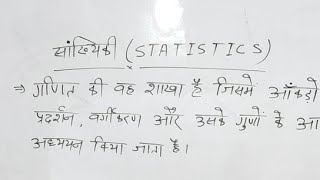 सांख्यिकी (STATISTICS)
⇒ गणित की वह शाखा है जिसमे आँकड़ो
प्रदर्शन, वर्गीकरण और उसके गुणों के आ
अध्ययन किया जाता है।